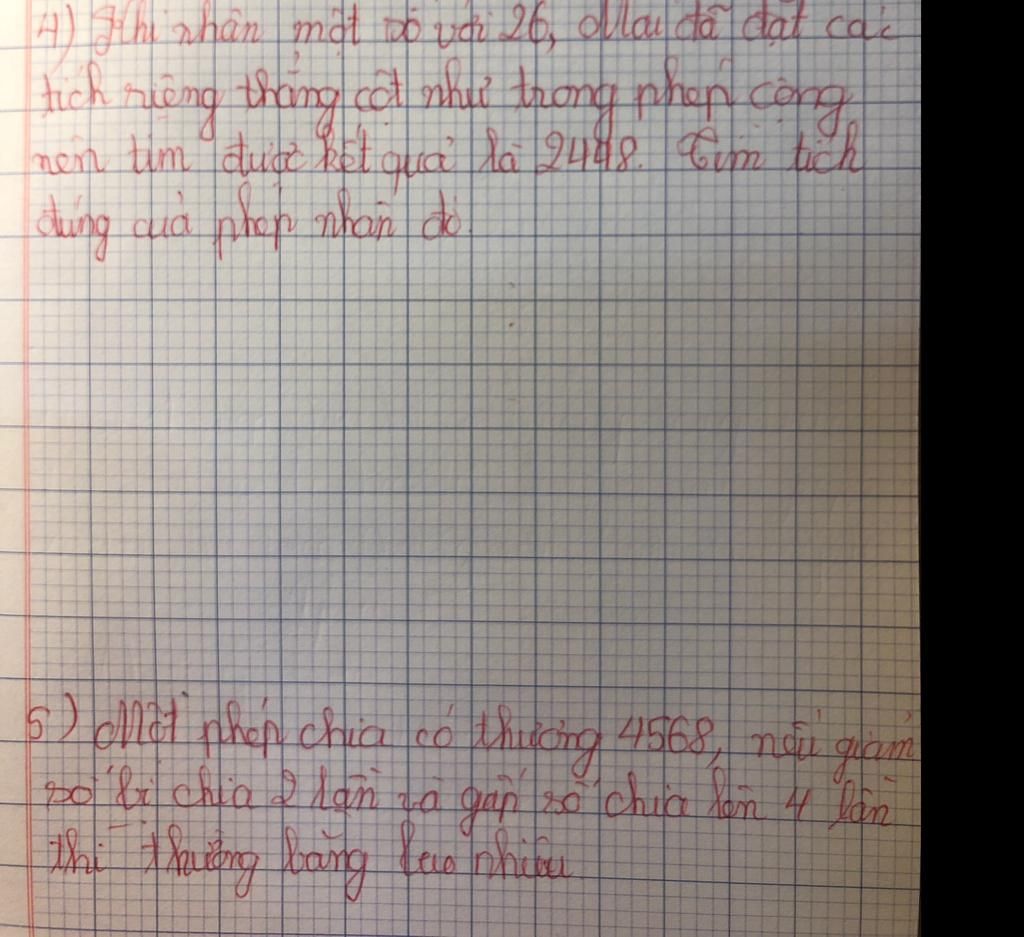 4) Khi nhân một số với 26, Mai đã đặt các
tích riêng thẳng cột như trong phép cộng
nên tìm được kết quả là 2448. Tìm tích
đúng của phép nhân đó.
5) Một phép chia có thương 4568, nếu giảm
số bị chia 2 lần và gấp số chia lên 4 lần
thì thương bằng bao nhiêu